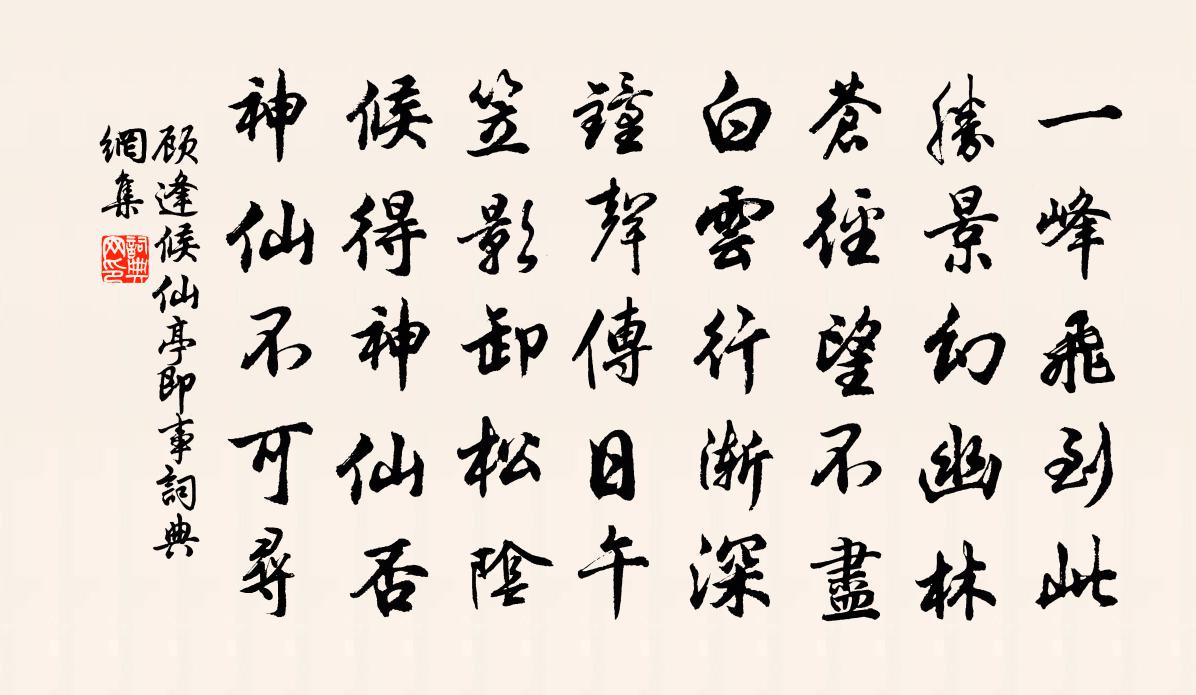 一峰飛到此
勝景幻幽林
蒼徑望不盡
白雲行漸深
鐘聲傳日午
笠影卸松陰
候得神仙否
神仙不可尋
顾逢候仙亭即事詞典
網集
詞典網印